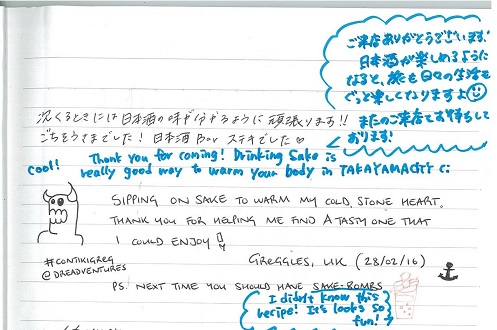 ご来店ありがとうございます!
日本酒が楽しめるように
なると、旅も日々の生活も
ぐっと楽しくなりますよ
またのご来店お待ちして
おります!
次くるときには日本酒の味が分かるように頑張ります!!
ごちそうさまでした! 日本酒Bar ステキでした♡
Cool!
Thank you for coming! Drinking Sake is
really good way to warm your body in TAKAYAMACITY C:
SIPPING ON SAKE TO WARM MY COLD, STONE HEART.
THANK YOU FOR HELPING ME FIND A TASTY ONE THAT
I COULD ENJOY!
#CONTIKIGREG
@DREADVENTURES
GREGGLES, UK (28/02/16)
PS. NEXT TIME YOU SHOULD HAVE SAKE-BOMBS
I didn't know this
recipe! It's looks so
fun!